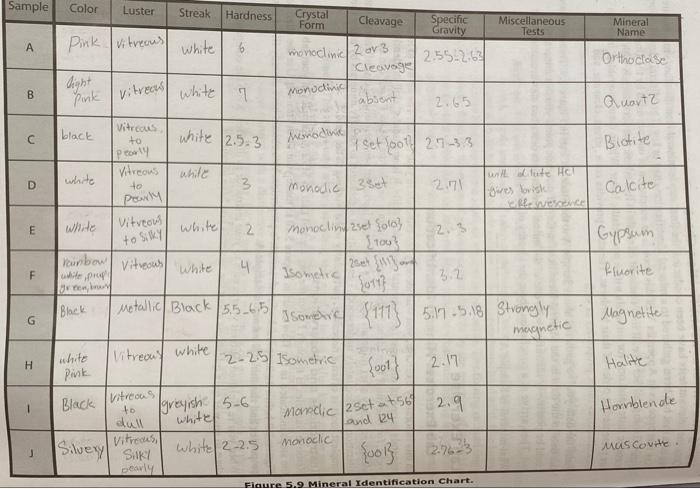 Sample Color Luster Streak Hardness Crystal Form Cleavage Specific Gravity Miscellaneous Tests Mineral Name
A Pink vitreous white 6 monoclinic 2 or 3 Cleavage 2.55-2.63 Orthoclase
B light Pink vitreous white 7 monoclinic absent 2.65 Quartz
C black Vitreous to pearly white 2.5-3 Monoclinic 1 set {001} 2.7-3.3 Biotite
D white Vitreous to pearly white 3 monoclic 3 set 2.71 with dilute Hcl gives brisk effervescence Calcite
E White Vitreous to Silky white 2 monoclinic 2set {010} {100} 2.3 Gypsum
F rainbow white, purple green, brown Vitreous white 4 Isometric 2set {111} {011} 3.2 fluorite
G Black Metallic Black 5.5-6.5 Isometric {111} 5.17-5.18 Strongly magnetic Magnetite
H white Pink Vitreous white 2-2.5 Isometric {001} 2.17 Halite
I Black Vitreous to dull greyish white 5-6 monoclic 2set at 56 and 124 2.9 Hornblende
J Silvery Vitreous, Silky pearly white 2-2.5 monoclic {001} 2.76-3 muscovite.
Figure 5.9 Mineral Identification Chart.